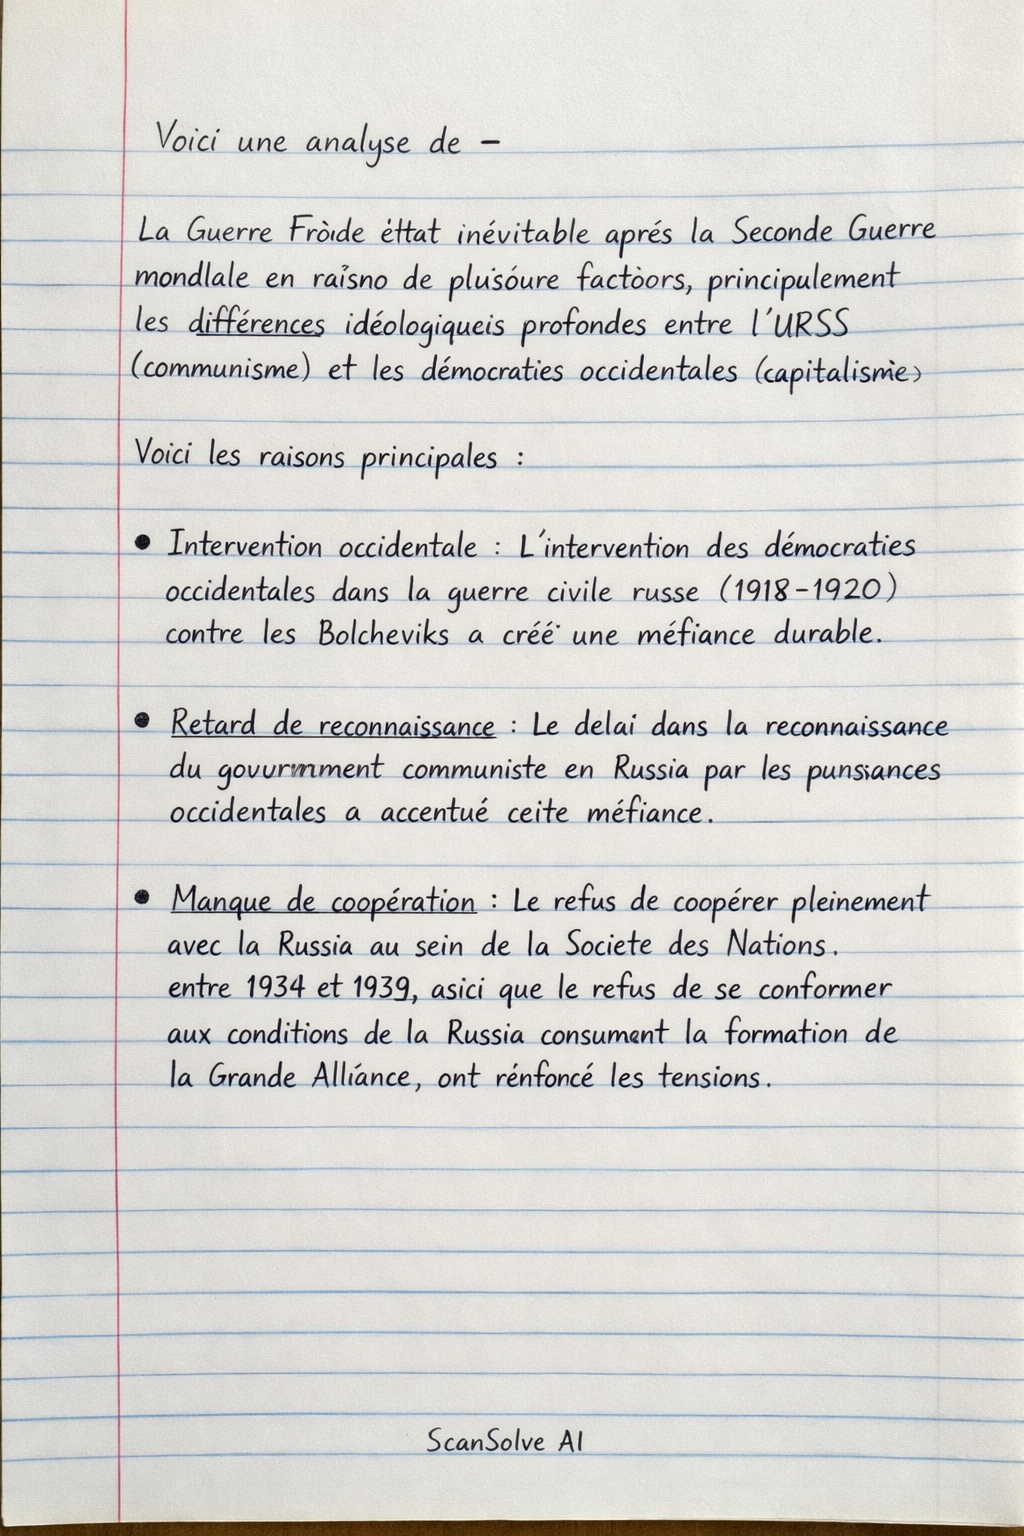 Voici une analyse de –
La Guerre Fròide éttat inévitable aprés la Seconde Guerre
mondlale en raisno de plusóure factòors, principulement
les différences idéologiqueis profondes entre l'URSS
(communisme) et les démocraties occidentales (capitalismè)
Voici les raisons principales :
• Intervention occidentale : L'intervention des démocraties
occidentales dans la guerre civile russe (1918-1920)
contre les Bolcheviks a créé une méfiance durable.
• Retard de reconnaissance : Le delai dans la reconnaissance
du communiste en Russia par les punsiances
occidentales a accentué ceite méfiance.
• Manque de coopération : Le refus de coopérer pleinement
avec la Russia au sein de la Societe des Nations.
entre 1934 et 1939, asici que le refus de se conformer
aux conditions de la Russia consumant la formation de
la Grande Allíance, ont rénfoncé les tensions.
ScanSolve AI